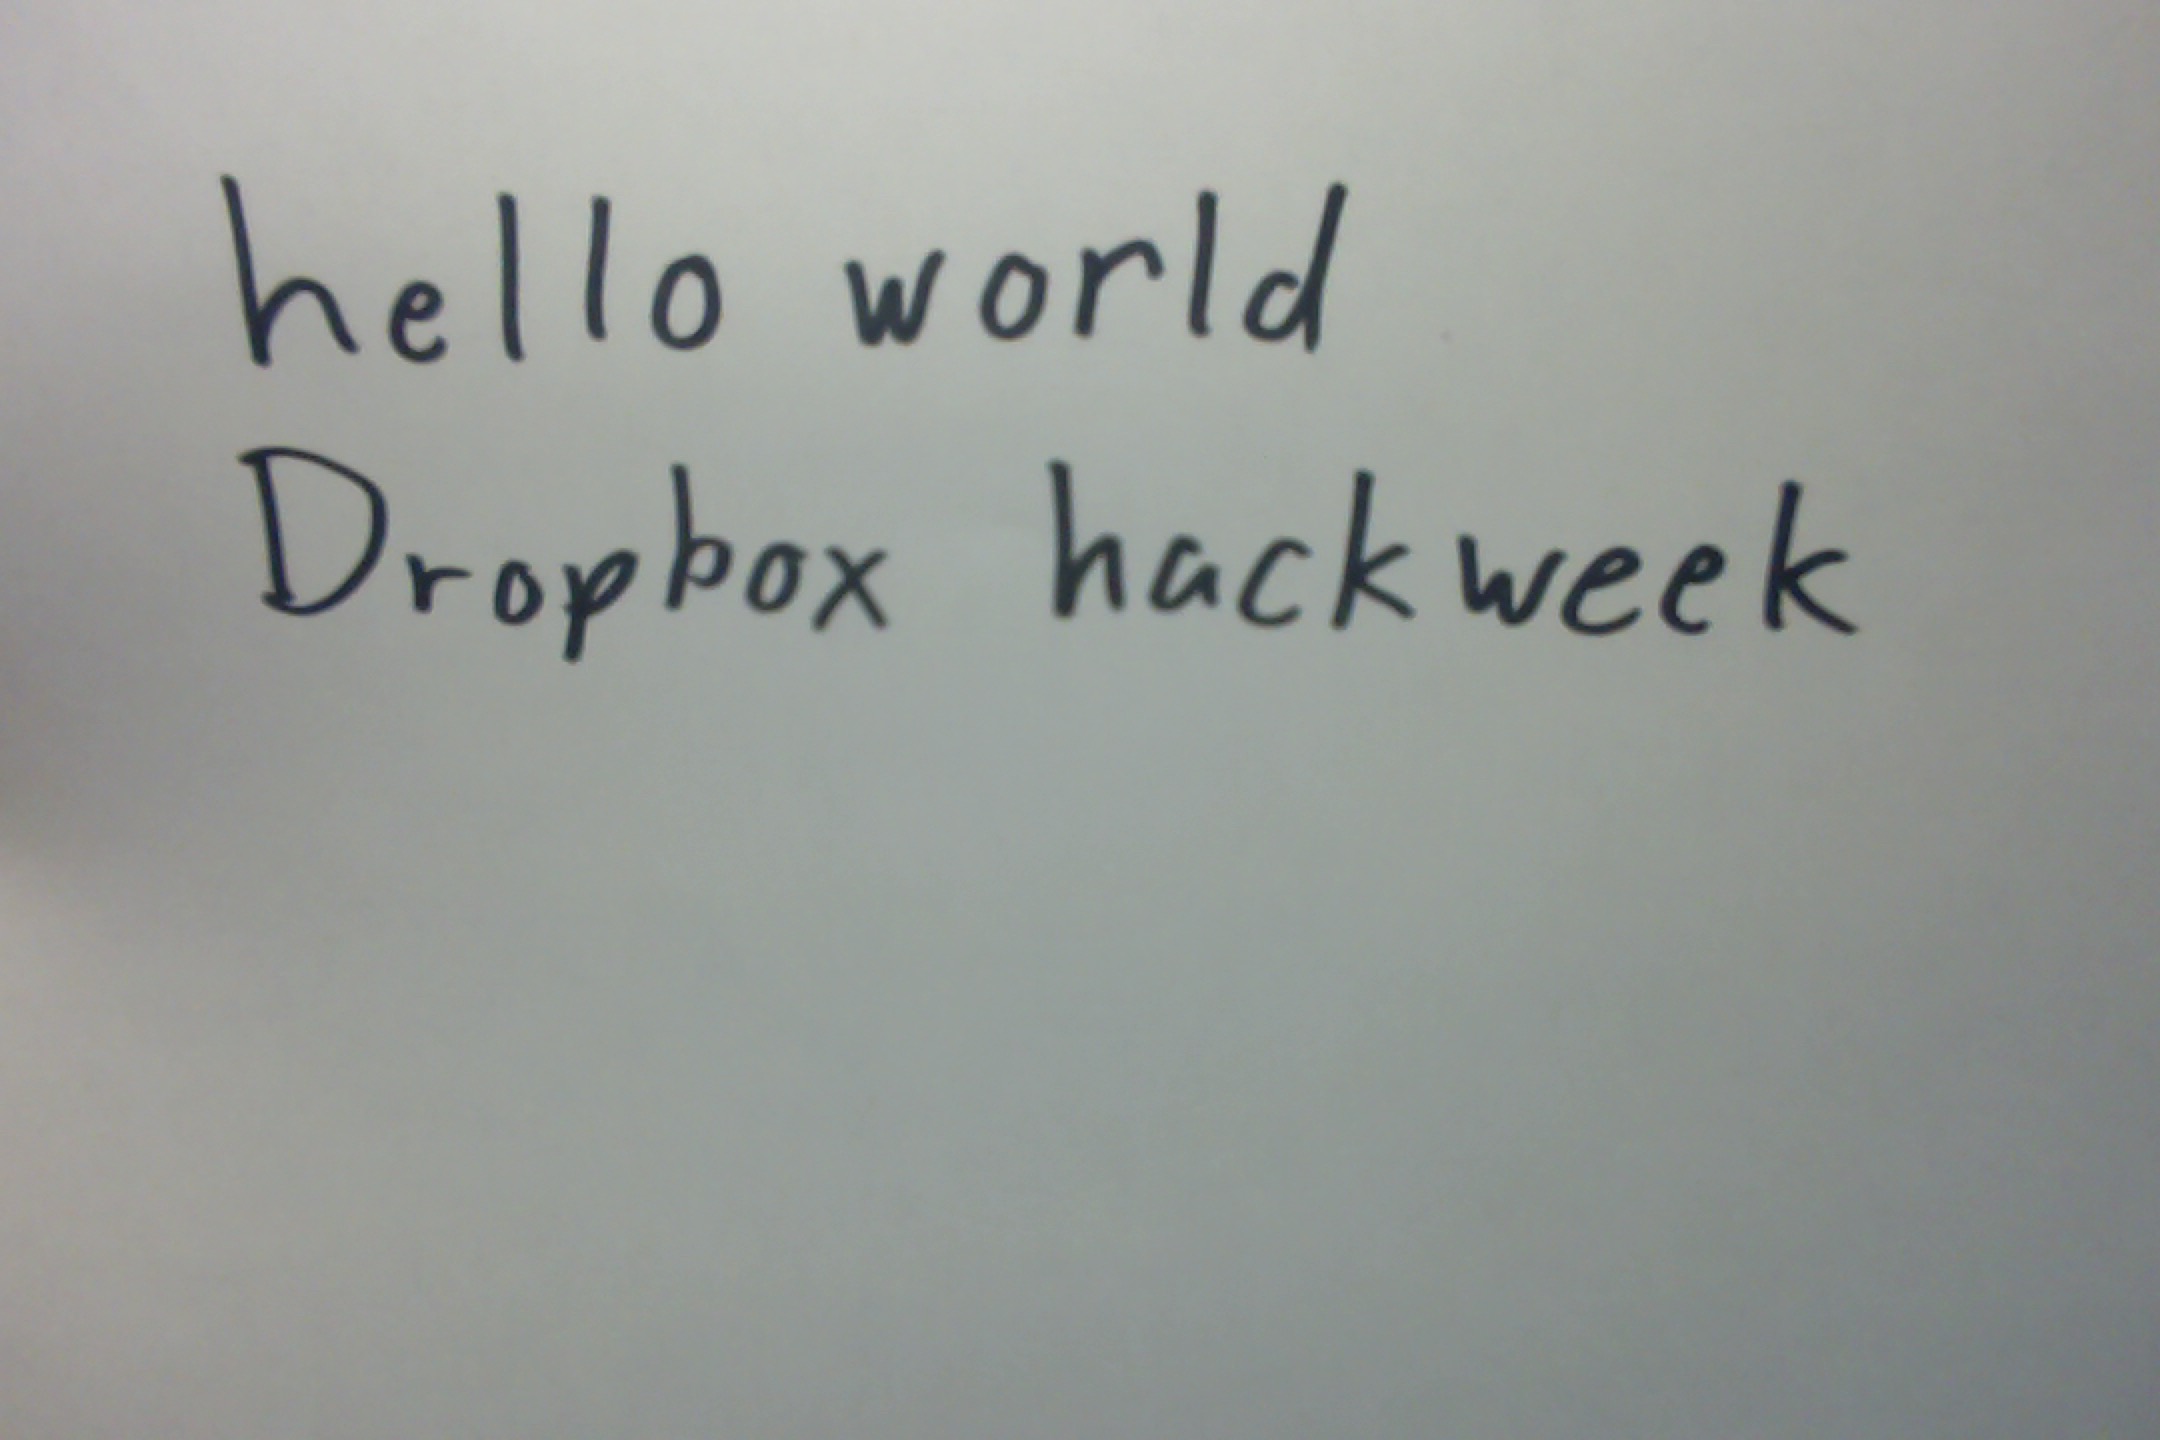 hello world
Dropbox hackweek